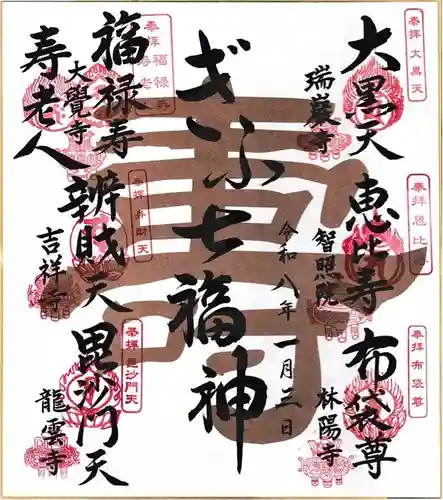 奉拝 大黒天
大黒天
瑞巌寺
奉拝 恵比
恵比寿
智照院
奉拝 布袋尊
布袋尊
林陽寺
ぎふ七福神
令和八年一月三日
奉拝 福禄寿
福禄寿
寿老人
大覺寺
奉拝 弁財天
辨財天
吉祥寺
奉拝 毘沙門天
毘沙門天
龍雲寺